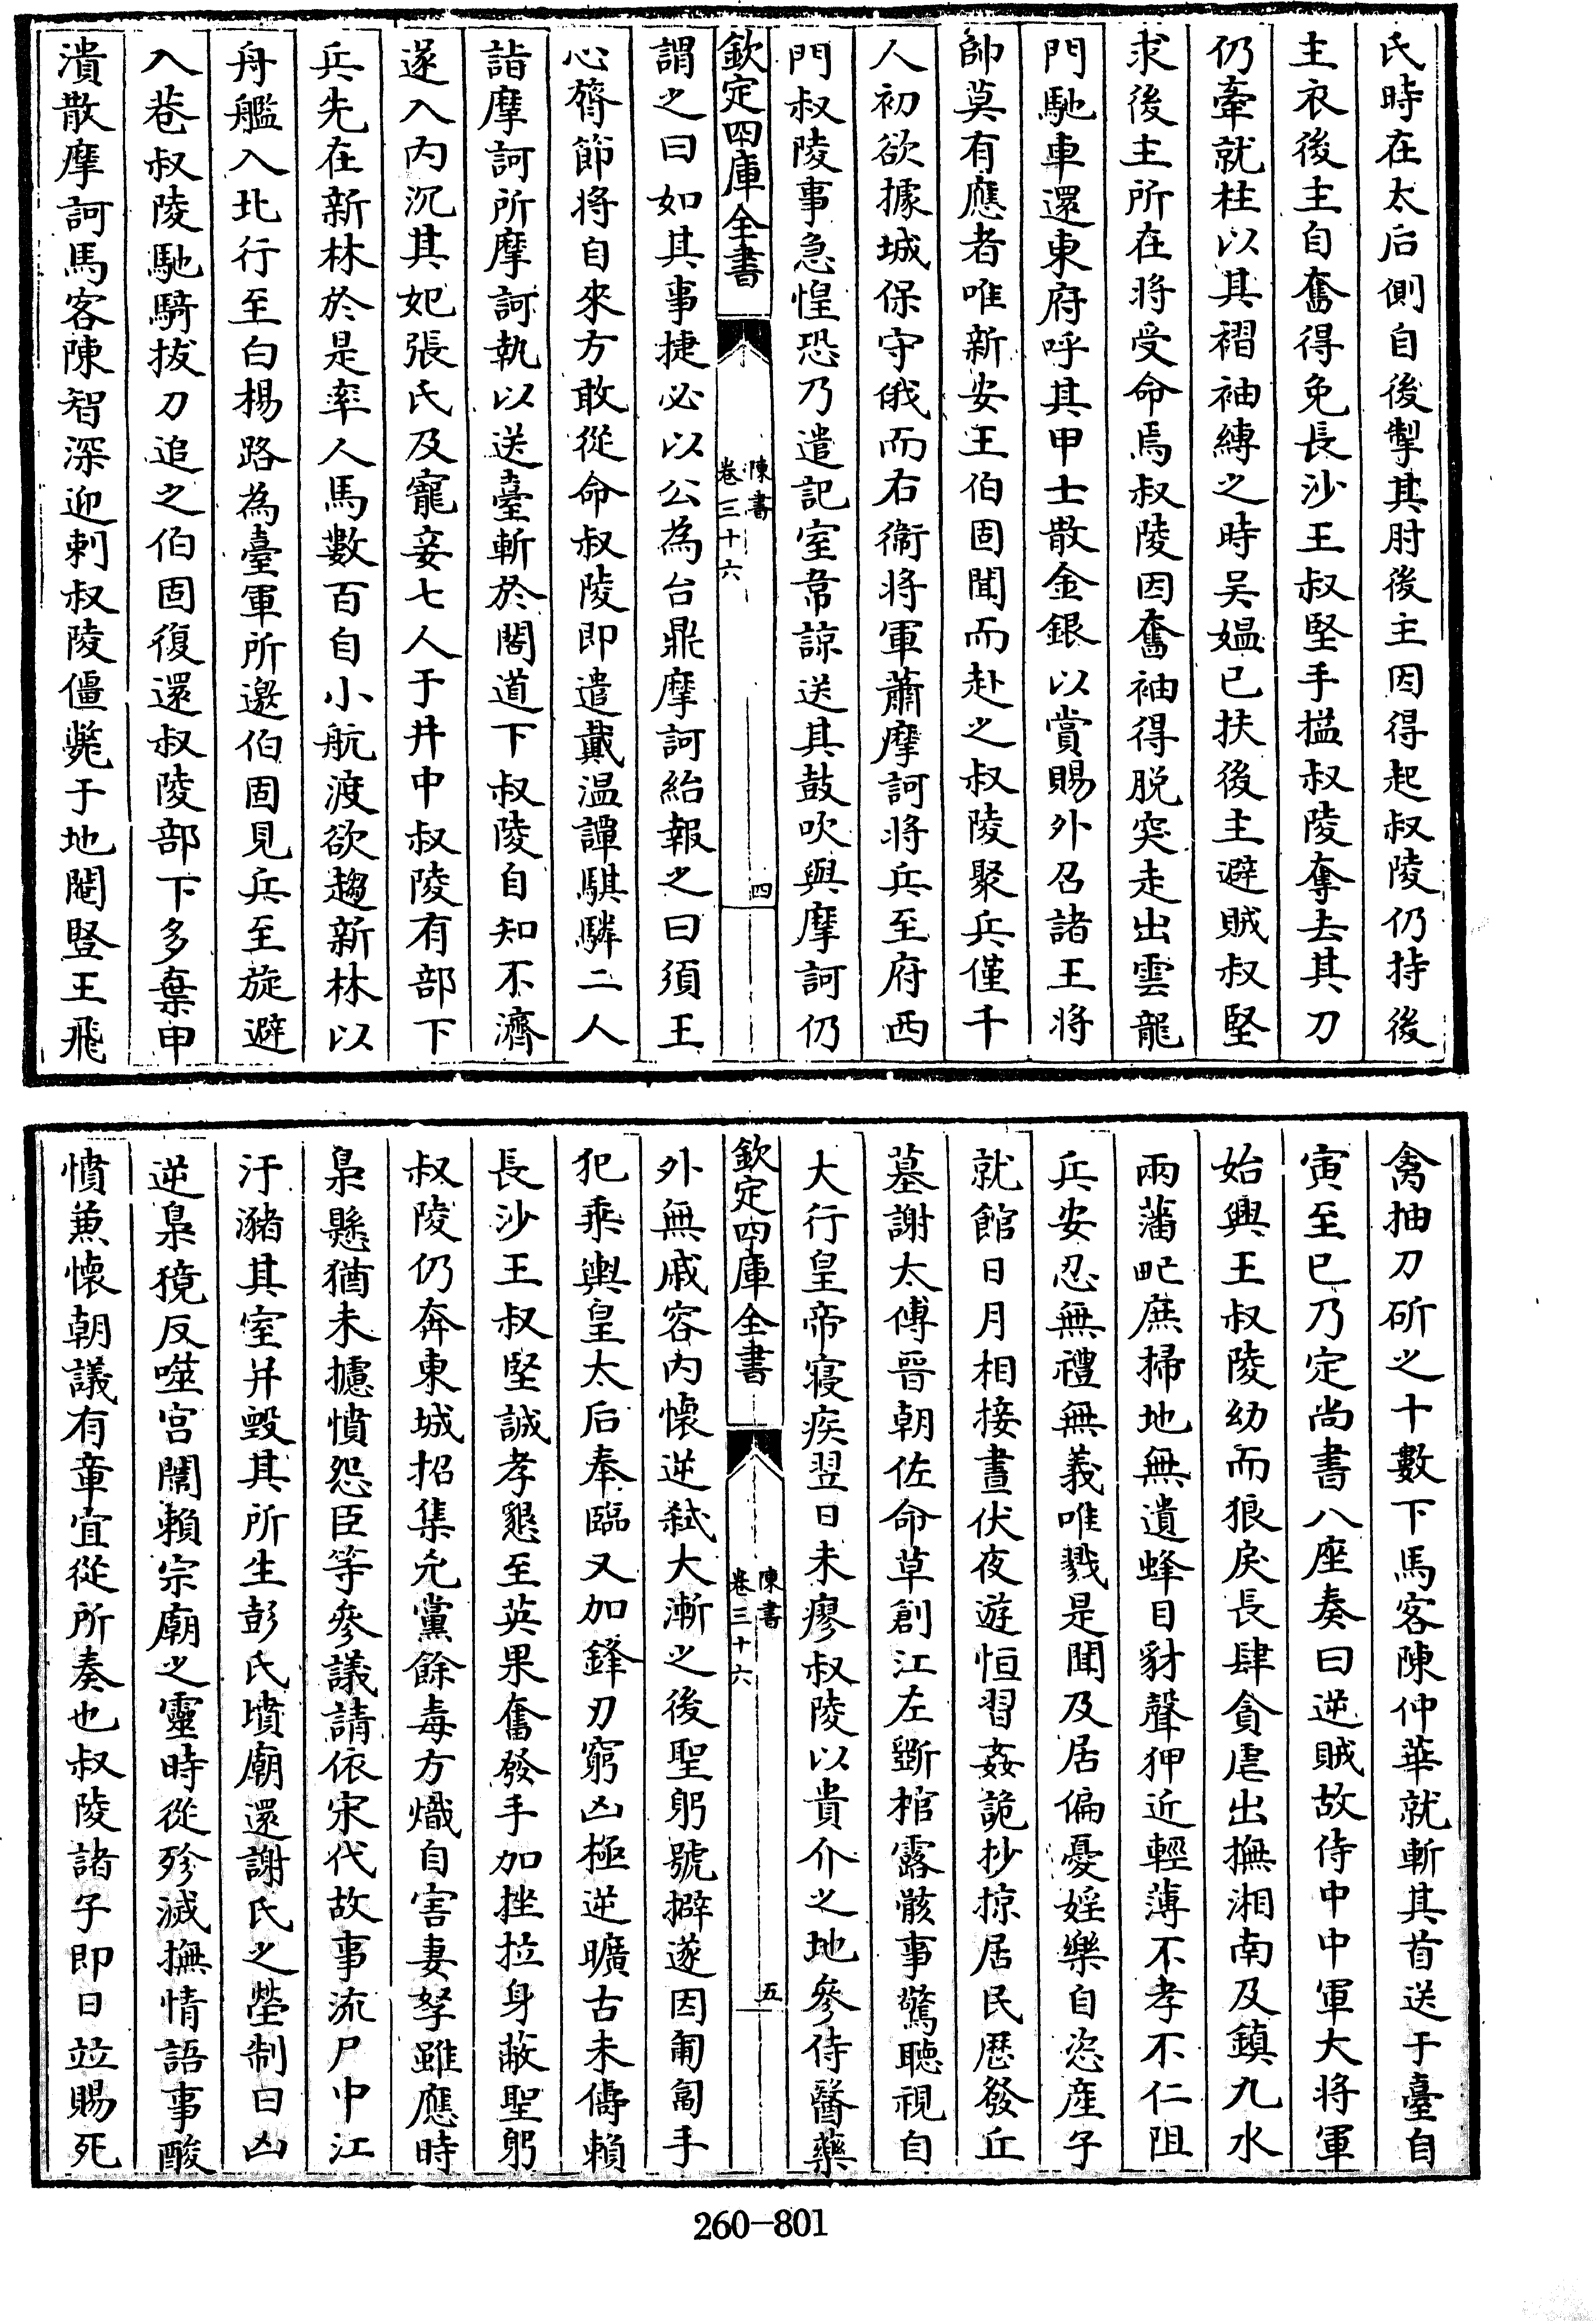 氏時在太后側自後掣其肘後主因得起叔陵仍持後
主衣後主自奮得免長沙王叔堅手搤叔陵奪去其刀
仍牽就柱以其褶袖縛之時吳媼已扶後主避賊叔堅
求後主所在將受命焉叔陵因奮袖得脱突走出雲龍
門馳車還東府呼其甲士散金銀以賞賜外召諸王將
帥莫有應者唯新安王伯固聞而赴之叔陵聚兵僅千
人初欲據城保守俄而右衞將軍蕭摩訶將兵至府西
門叔陵事急惶恐乃遣記室韋諒送其鼓吹與摩訶仍
欽定四庫全書
陳書
卷三十六
四
謂之曰如其事捷必以公為台鼎摩訶紿報之曰須王
心膂節將自來方敢從命叔陵即遣戴温譚騏驎二人
詣摩訶所摩訶執以送臺斬於閤道下叔陵自知不濟
遂入内沉其妃張氏及寵妾七人于井中叔陵有部下
兵先在新林於是率人馬數百自小航渡欲趨新林以
舟艦入北行至白楊路為臺軍所邀伯固見兵至旋避
入巷叔陵馳騎拔刀追之伯固復還叔陵部下多棄甲
潰散摩訶馬客陳智深迎刺叔陵僵斃于地閹豎王飛
禽抽刀斫之十數下馬客陳仲華就斬其首送于臺自
寅至巳乃定尚書八座奏曰逆賊故侍中中軍大將軍
始興王叔陵幼而狼戾長肆貪虐出撫湘南及鎮九水
兩藩甿庶掃地無遺蜂目豺聲狎近輕薄不孝不仁阻
兵安忍無禮無義唯戮是聞及居偏憂婬樂自恣産子
就館日月相接晝伏夜遊恒習姦詭抄掠居民歷發丘
墓謝太傅晉朝佐命草創江左斵棺露骸事驚聽視自
大行皇帝寢疾翌日未瘳叔陵以貴介之地參侍醫藥
欽定四庫全書
陳書
卷三十六
五
外無戚容内懷逆弑大漸之後聖躬號擗遂因匍匐手
犯乘輿皇太后奉臨又加鋒刃窮凶極逆曠古未儔賴
長沙王叔堅誠孝懇至英果奮發手加挫拉身蔽聖躬
叔陵仍奔東城招集兇黨餘毒方熾自害妻孥雖應時
梟懸猶未攄憤怨臣等參議請依宋代故事流尸中江
汙瀦其室并毁其所生彭氏墳廟還謝氏之塋制曰凶
逆梟獍反噬宫闈賴宗廟之靈時從殄滅撫情語事酸
憤兼懷朝議有章宜從所奏也叔陵諸子即日竝賜死
260-801